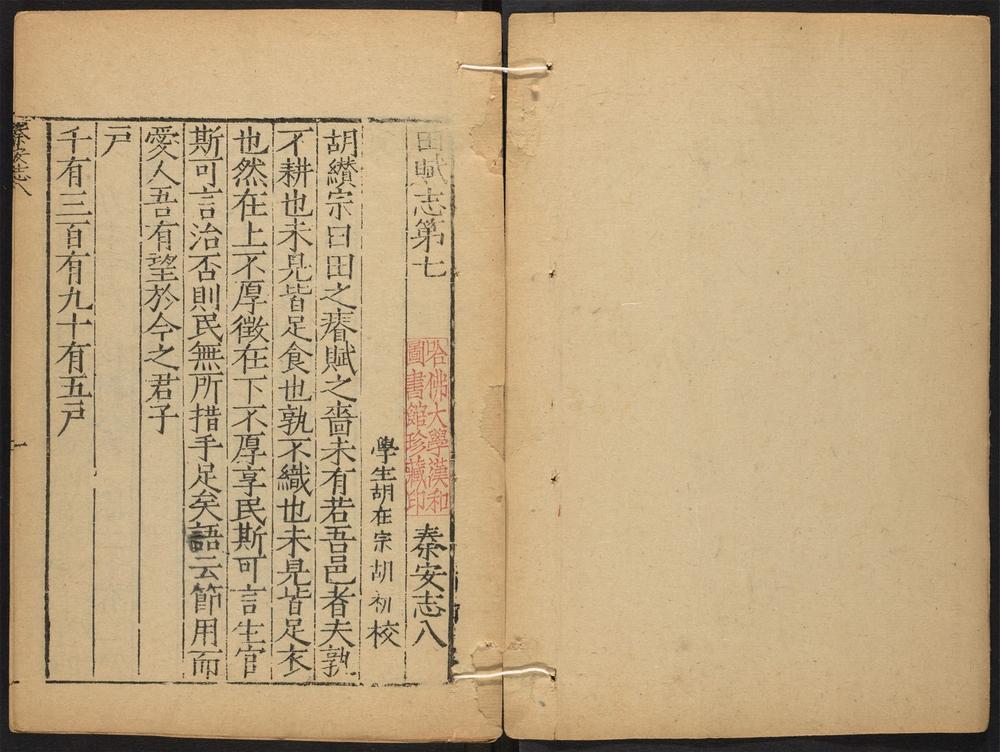 田賦志第七 秦安志八
哈佛大學漢和
圖書館珍藏印
學生胡在宗胡初校
胡纘宗曰田之瘠賦之嗇未有若吾邑者夫孰
不耕也未見皆足食也孰不織也未見皆足衣
也然在上不厚徵在下不厚享民斯可言生官
斯可言治否則民無所措手足矣語云節用而
愛人吾有望於今之君子
戸
千有三百有九十有五戸
秦安志八
一